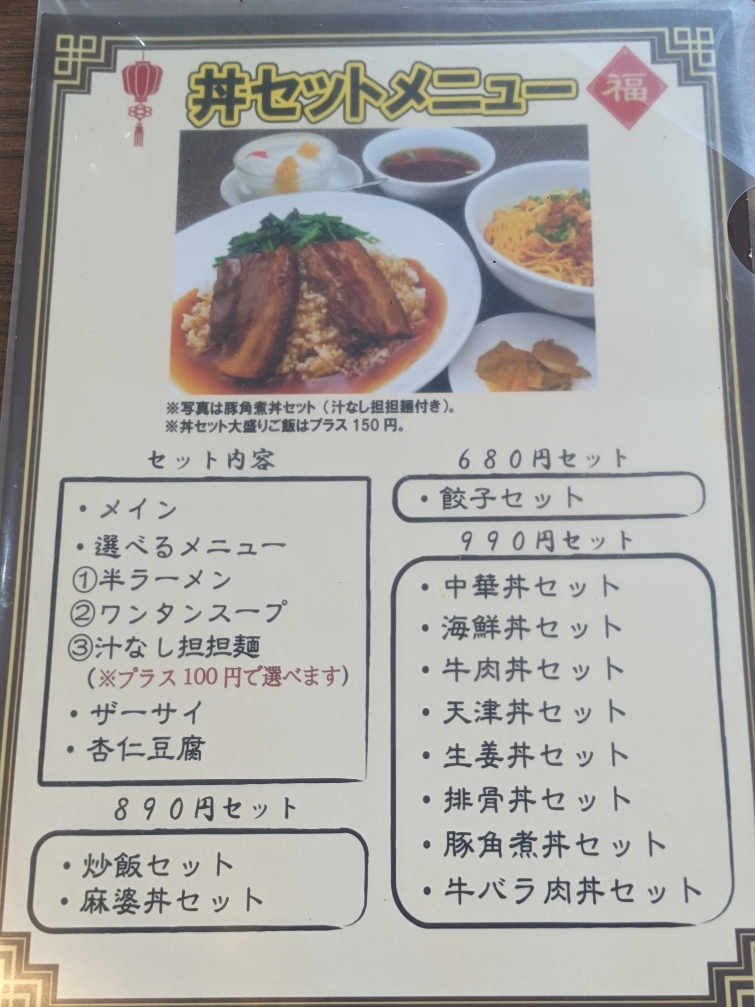 丼セットメニュー
福
※写真は豚角煮丼セット（汁なし担担麺付き）。
※丼セット大盛りご飯はプラス150円。
セット内容
・メイン
・選べるメニュー
①半ラーメン
②ワンタンスープ
③汁なし担担麺
（※プラス100円で選べます）
・ザーサイ
・杏仁豆腐
890円セット
・炒飯セット
・麻婆丼セット
680円セット
・餃子セット
990円セット
・中華丼セット
・海鮮丼セット
・牛肉丼セット
・天津丼セット
・生姜丼セット
・排骨丼セット
・豚角煮丼セット
・牛バラ肉丼セット